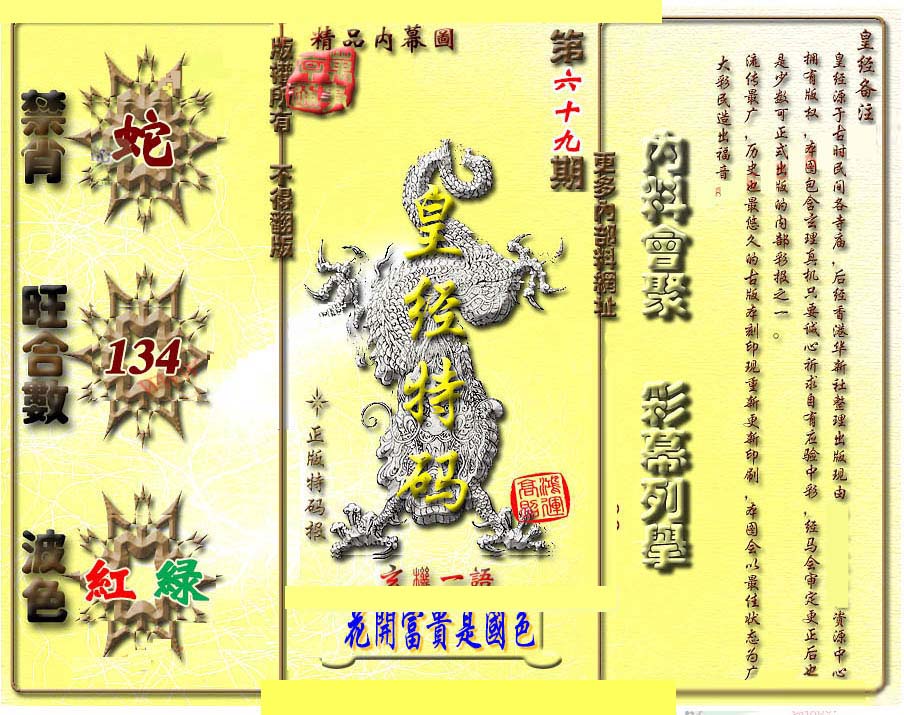 精品内幕圖
第六十九期
版權所有 不得翻版
更多內部料網址
禁肖
蛇
旺合數
134
波色
紅 綠
皇经特码
正版特码报
鴻運高照
玄機一語
花開富貴是國色
內料會聚
彩幕列舉
皇经备注
皇经源于古时民间各寺庙，后经香港华新社整理出版现由 资源中心
拥有版权，本图包含玄理真机只要诚心祈求自有应验中彩，经马会审定更正后也
是少数可正式出版的内部彩报之一。
流传最广，历史也最悠久的古版本刻印现重新更新印刷，本图会以最佳状态为广
大彩民造出福音